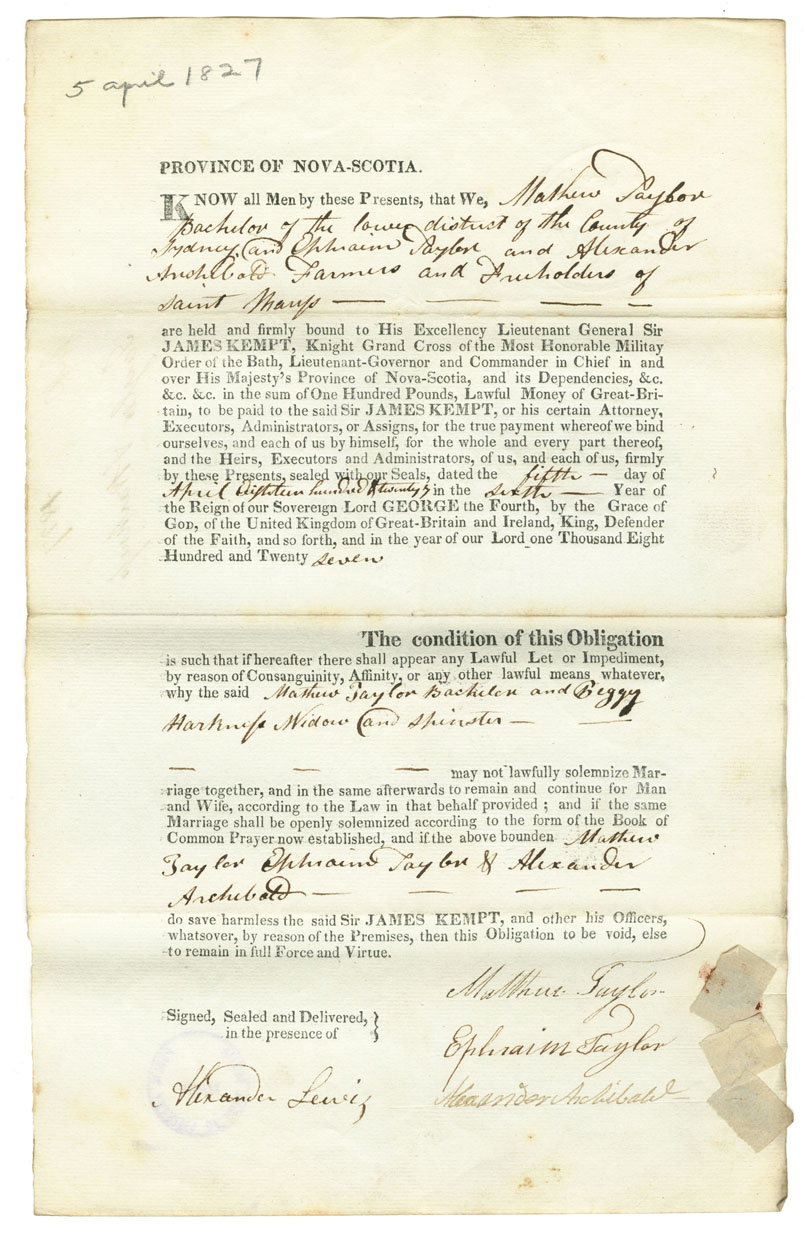 5 april 1827
PROVINCE OF NOVA-SCOTIA.
KNOW all Men by these Presents, that We, Mathew Taylor
Bachelor of the lower district of the County of
Sydney, and Ephraim Taylor and Alexander
Archibald Farmers and Freeholders of
Saint Marys — — — —
are held and firmly bound to His Excellency Lieutenant General Sir
JAMES KEMPT, Knight Grand Cross of the Most Honorable Militay
Order of the Bath, Lieutenant-Governor and Commander in Chief in and
over His Majesty's Province of Nova-Scotia, and its Dependencies, &c.
&c. &c. in the sum of One Hundred Pounds, Lawful Money of Great-Bri-
tain, to be paid to the said Sir JAMES KEMPT, or his certain Attorney,
Executors, Administrators, or Assigns, for the true payment whereof we bind
ourselves, and each of us by himself, for the whole and every part thereof,
and the Heirs, Executors and Administrators, of us, and each of us, firmly
by these Presents, sealed with our Seals, dated the fifth — day of
April Eighteen hundred & twenty 7 in the sixth — Year of
the Reign of our Sovereign Lord GEORGE the Fourth, by the Grace of
GOD, of the United Kingdom of Great-Britain and Ireland, King, Defender
of the Faith, and so forth, and in the year of our Lord one Thousand Eight
Hundred and Twenty seven
The condition of this Obligation
is such that if hereafter there shall appear any Lawful Let or Impediment,
by reason of Consanguinity, Affinity, or any other lawful means whatever,
why the said Mathew Taylor Bachelor and Peggy
Harkness Widow and Spinster — —
— — — may not lawfully solemnize Mar-
riage together, and in the same afterwards to remain and continue for Man
and Wife, according to the Law in that behalf provided ; and if the same
Marriage shall be openly solemnized according to the form of the Book of
Common Prayer now established, and if the above bounden Mathew
Taylor Ephraim Taylor & Alexander
Archibald — — — —
do save harmless the said Sir JAMES KEMPT, and other his Officers,
whatsover, by reason of the Premises, then this Obligation to be void, else
to remain in full Force and Virtue.
Matthew Taylor
Signed, Sealed and Delivered, }
in the presence of
Ephraim Taylor
Alexander Lewis
Alexander Archibald